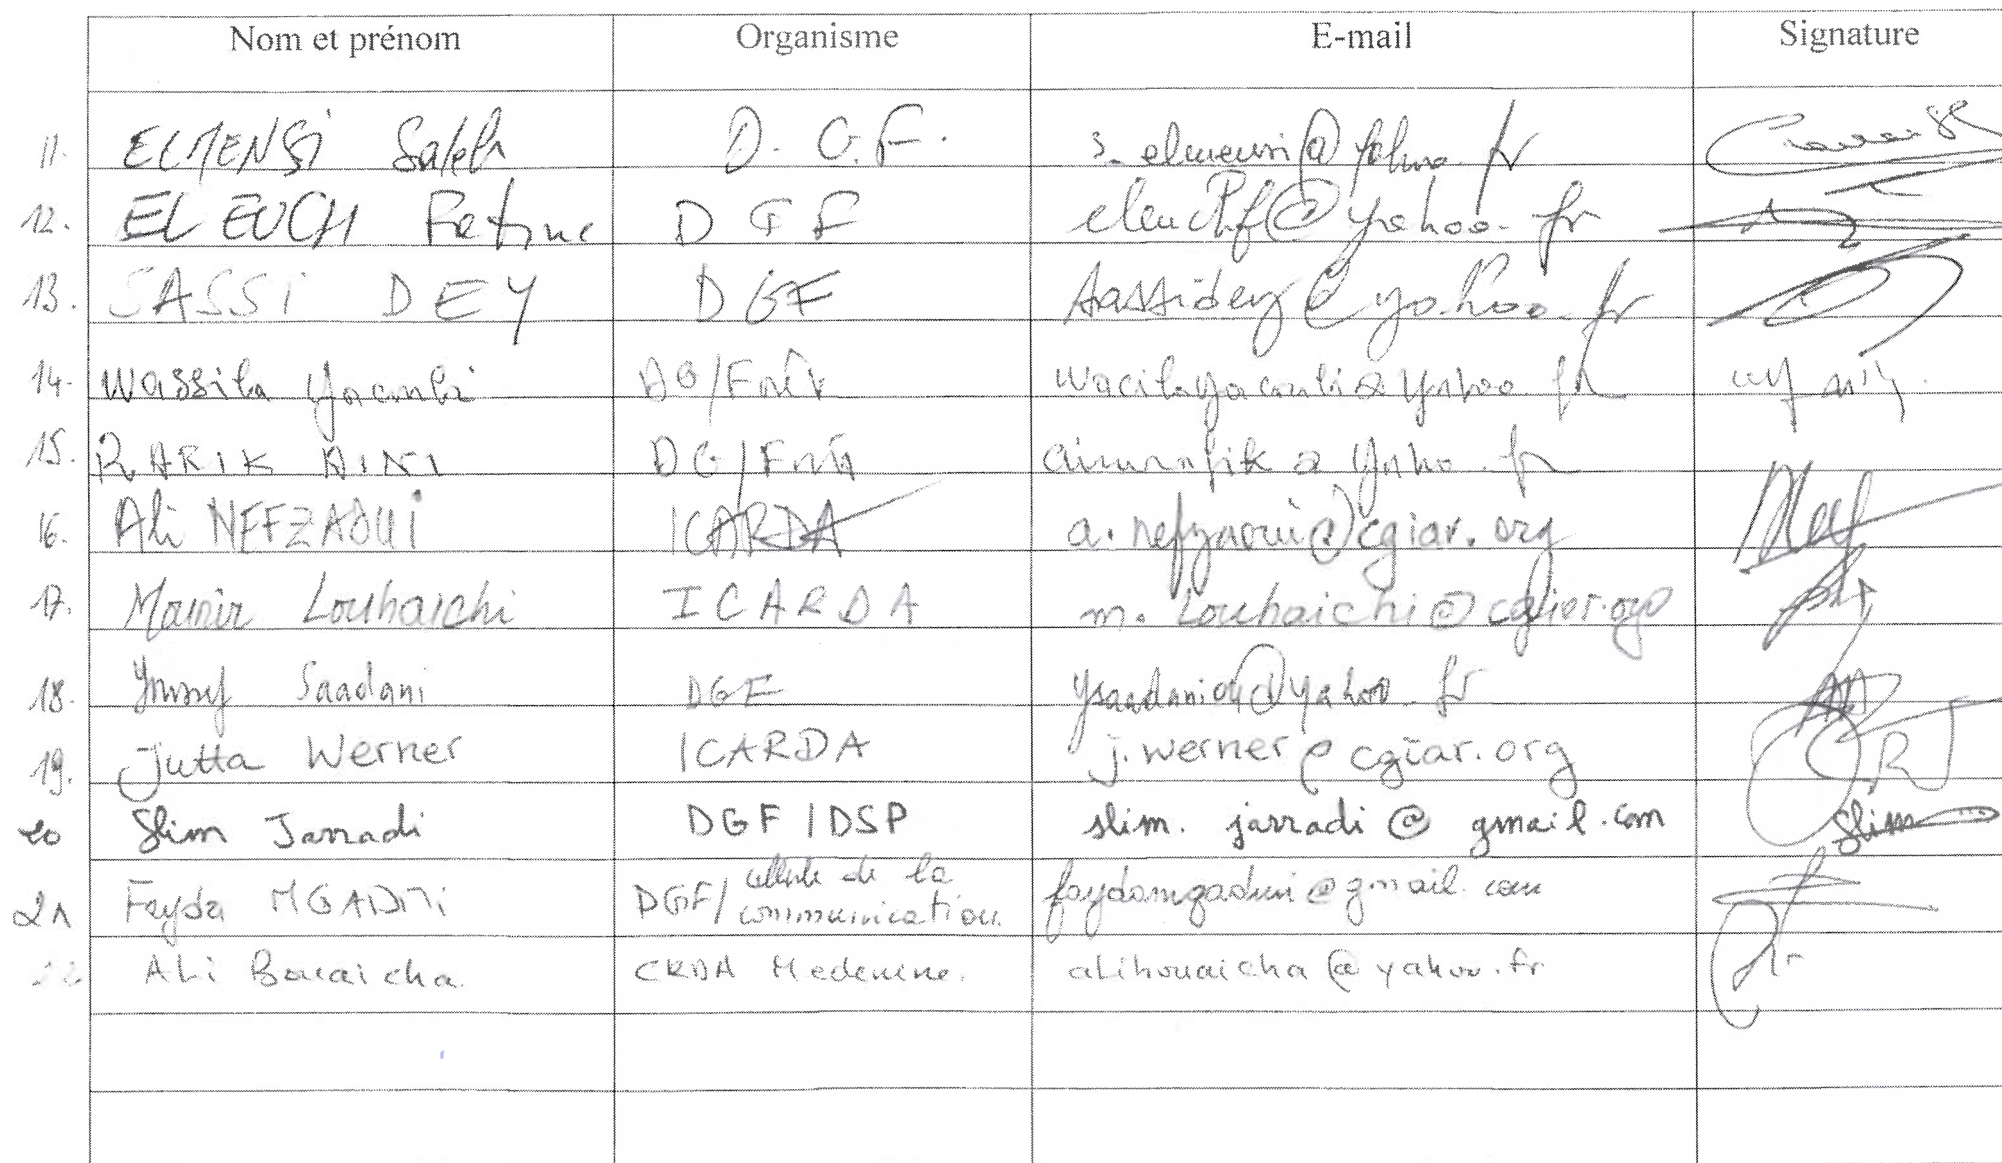 Nom et prénom Organisme E-mail Signature
11. ELMENSI Saleh D.G.F. s.elmensi@yahoo.fr
12. ELEUCH Fetine DGF eleuchf@yahoo.fr
13. SASSI DEY DGF sassidey@yahoo.fr
14. Wassila Yacoubi DG/Forêt wacilayacoubi@yahoo.fr
15. RAFIK AINI DG/Forêt ainirafik@yaho.fr
16. Ali NEFZAOUI ICARDA a.nefzaoui@cgiar.org
17. Mounir Louhaichi ICARDA m.Louhaichi@cgiar.org
18. Youssef Saadani DGF @yahoo.fr
19. Jutta Werner ICARDA j.werner@cgiar.org
20 Slim Jarradi DGF/DSP slim.jarradi@gmail.com Slim
21 Fayda MGADMi DGF/cellule de la communication faydamgadmi@gmail.com
22 Ali Bouaicha. CRDA Medenine. alibouaicha@yahoo.fr